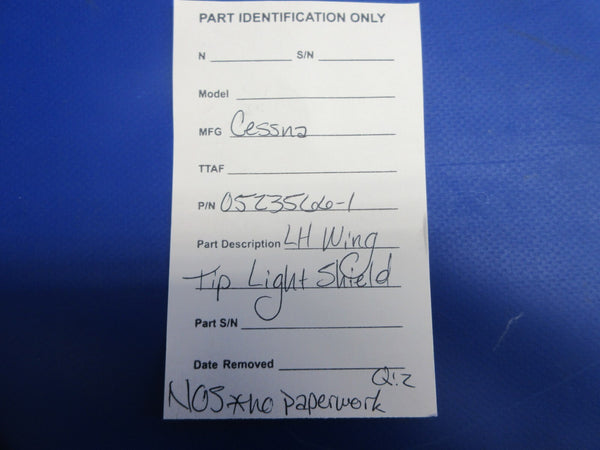 PART IDENTIFICATION ONLY
N S/N
Model
MFG Cessna
TTAF
P/N 0523566-1
Part Description LH Wing
Tip Light Shield
Part S/N
Date Removed
Q:2
NOS*no paperwork